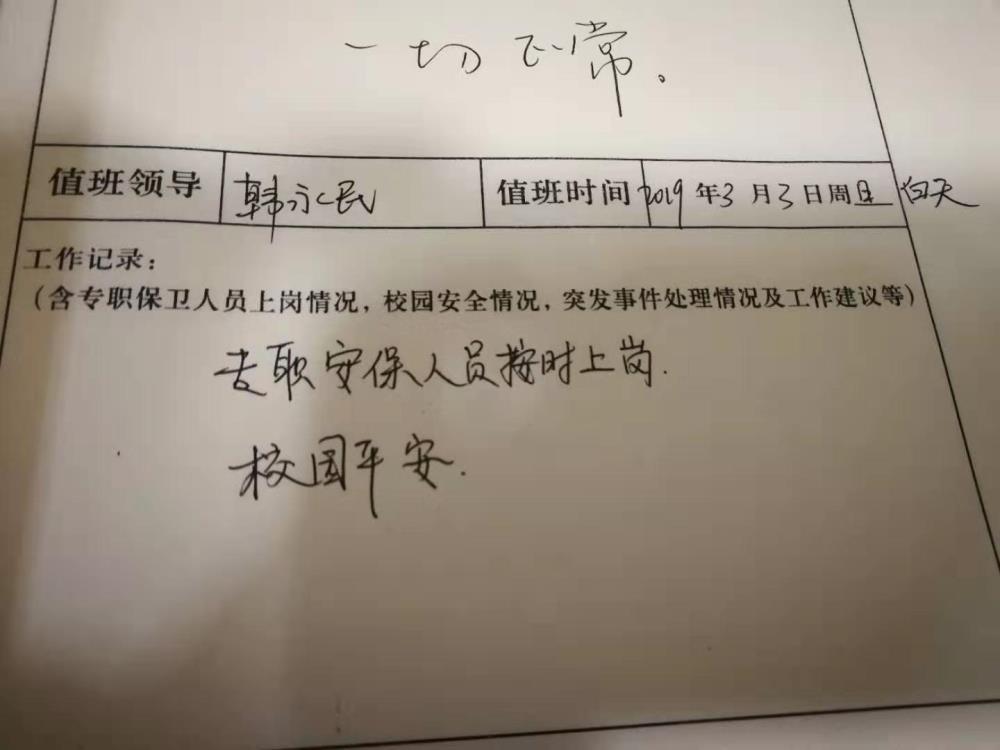 一切正常。
值班领导 韩永民 值班时间 2019年3月3日周日 白天
工作记录：
（含专职保卫人员上岗情况，校园安全情况，突发事件处理情况及工作建议等）
专职安保人员按时上岗.
校园平安.